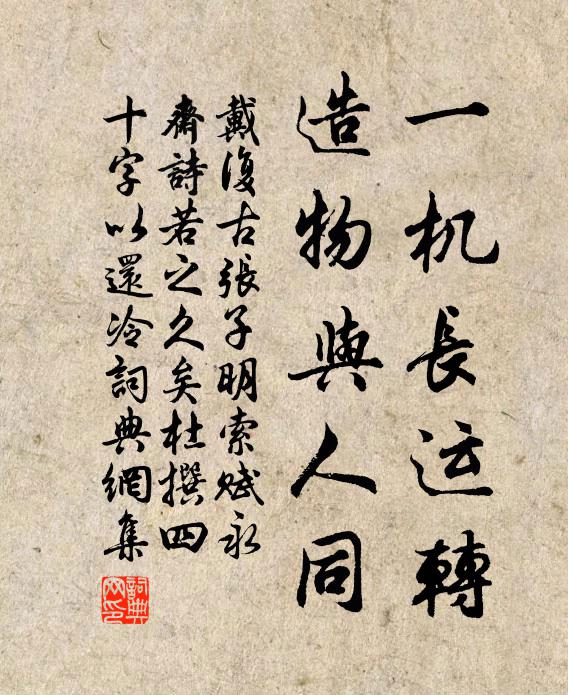 一机長运轉
造物與人同
戴復古張子明索賦永
齋詩若之久矣杜撰四
十字以還冷詞典網集
詞典网印